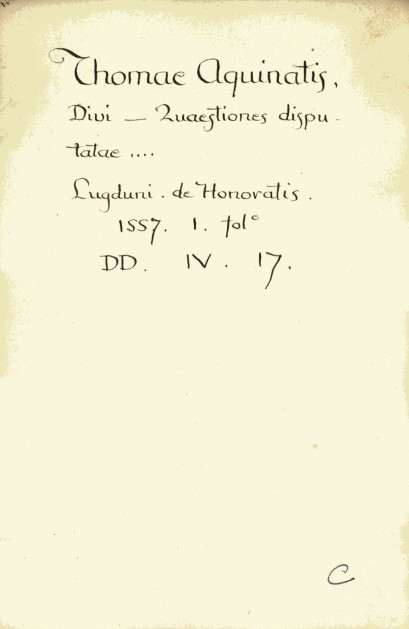 Thomae Aquinatis,
Divi — Quaestiones dispu-
tatae ....
Lugduni. de Honoratis.
1557. 1. fol°
DD. IV. 17.
C